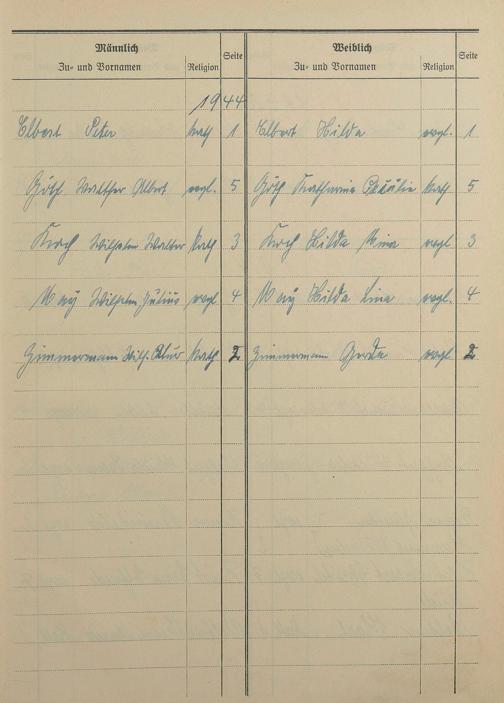 Männlich Weiblich
Zu- und Vornamen Religion Seite Zu- und Vornamen Religion Seite
1944
Elbert Peter kath 1 Elbert Hilda evgl. 1
Göth Walther Albert evgl. 5 Göth Katharina Cäcilie kath 5
Koch Wilhelm Walter kath 3 Koch Hilda Mina evgl 3
May Wilhelm Julius evgl 4 May Hilda Lina evgl. 4
Zimmermann Wilh. kath 2 Zimmermann Gerda evgl 2